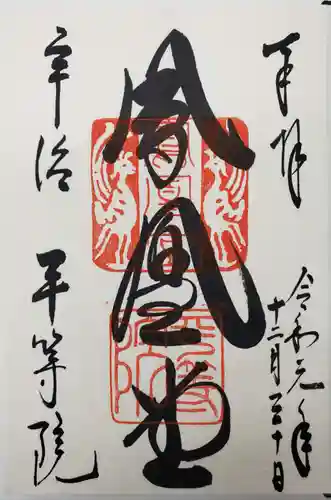 奉拝
令和元年
十二月三十日
鳳凰堂
宇治
平等院